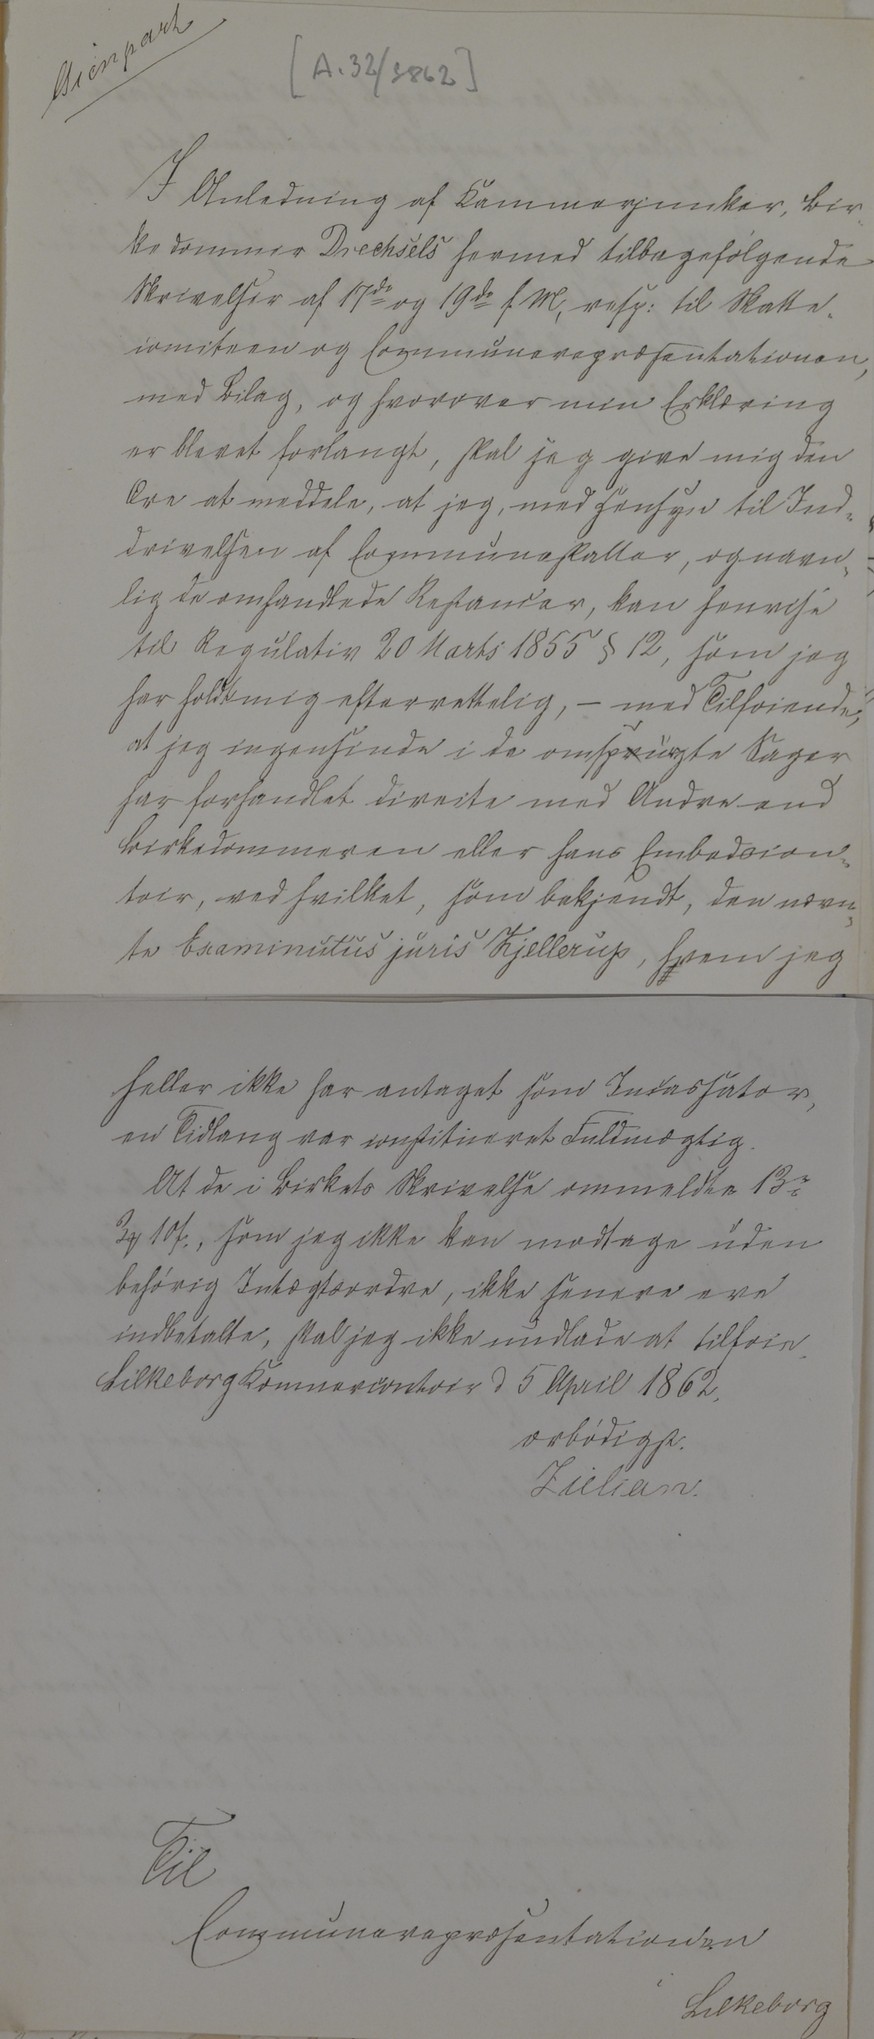 Gienpart
[A. 32/1862]
I Anledning af Kammerjunker, Bir-
kedommer Drechsels hermed tilbagefølgende
Skrivelser af 17de og 19de f. M, resp: til Skatte-
comiteen og Communerepræsentationen,
med Bilag, og hvorover min Erklæring
er blevet forlangt, skal jeg give mig den
Ære at meddele, at jeg, med Hensyn til Ind-
drivelsen af Communeskatter, og navn-
lig de omhandlede Restancer, kan henvise
til Regulativ 20 Marts 1855 § 12, som jeg
har holdt mig efterrettelig, – med Tilføiende,
at jeg ingensinde i de omspurgte Sager
har forhandlet directe med Andre end
Birkedommeren eller hans Embedscon-
toir, ved hvilket, som bekjendt, den nævn-
te Examinatus juris Kjellerup, hvem jeg
heller ikke har antaget som Incassator,
en Tidlang var constitueret Fuldmægtig.
At de i Birkets Skrivelse ommeldte 13 r
3 ꝟ 10 s., som jeg ikke kan modtage uden
behørig Indtægtsordre, ikke senere ere
indbetalte, skal jeg ikke undlade at tilføie.
Silkeborg Kæmnercontoir d 5 April 1862.
ærbødigst.
Zielian.
Til
Communerepræsentationen
i
Silkeborg